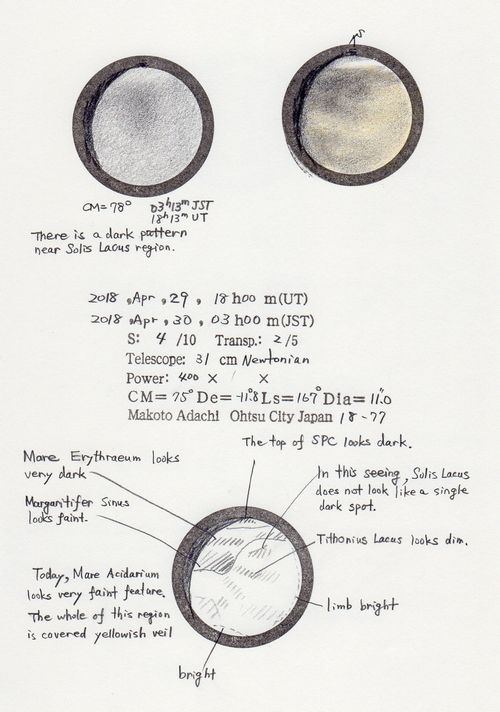 CM=78° 03h13m JST
18h13m UT
There is a dark pattern
near Solis Lacus region.
2018 ,Apr , 29 , 18 h00 m(UT)
2018 ,Apr , 30 , 03 h00 m(JST)
S: 4 /10 Transp.: 2/5
Telescope: 31 cm Newtonian
Power: 400 × / ×
CM= 75° De= -11.8 Ls= 167° Dia= 11.0"
Makoto Adachi Ohtsu City Japan 18-77
The top of SPC looks dark.
Mare Erythraeum looks
very dark
Margaritifer Sinus
looks faint.
In this seeing, Solis Lacus
does not look like a single
dark spot.
Tithonius Lacus looks dim.
Today, Mare Acidarium
looks very faint feature.
The whole of this region
is covered yellowish veil
limb bright
bright